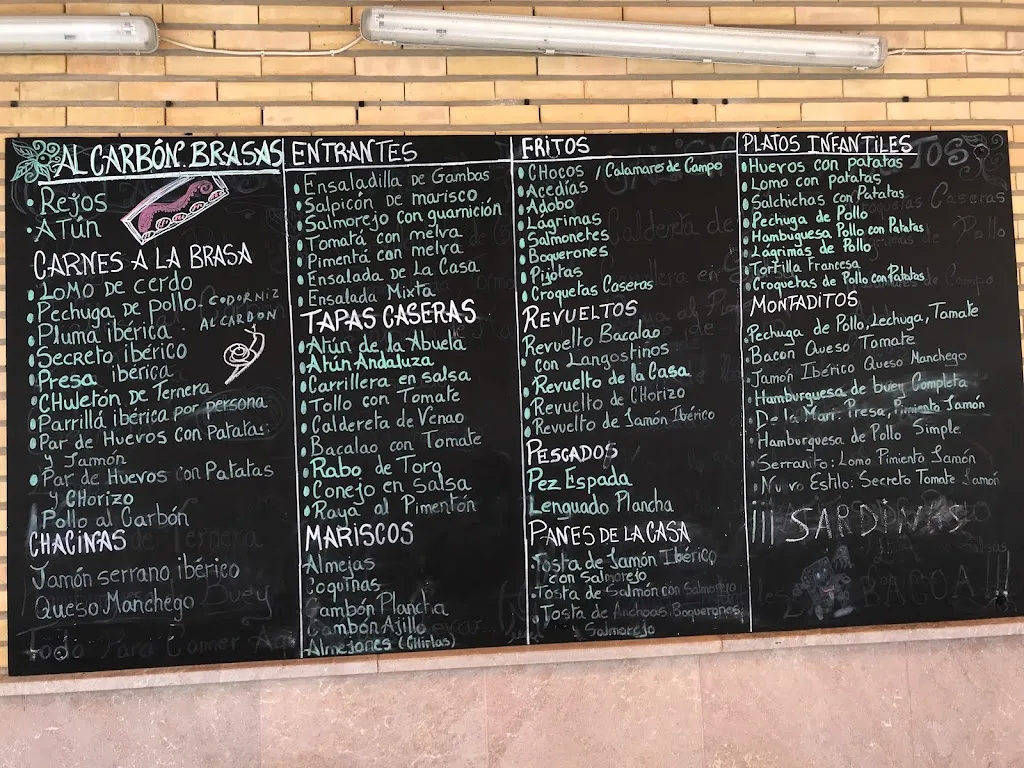 AL CARBÓN. BRASAS
• Rejos
• ATún
CARNES A LA BRASA
• LOMO DE CERDO
• Pechuga de pollo
• Pluma ibérica
• Secreto ibérico
• Presa ibérica
• CHuletón DE Ternera
• Parrillá ibérica por persona
• Par de Huevos con Patatas
y Jamón
• Par de Huevos con Patatas
y CHorizo
• Pollo al Carbón
CODORNIZ
AL CARBON
CHACINAS
Jamón serrano, ibérico
Queso Manchego
Todo Para Comer
ENTRANTES
• Ensaladilla DE Gambas
• Salpicón DE marisco
• Salmorejo con guarnición
• Tomatá con melva
• Pimentá con melva
• Ensalada DE La Casa
• Ensalada Mixta
TAPAS CASERAS
• Atún de la Abuela
• Atún Andaluza
• Carrillera en salsa
• Tollo con Tomate
• Caldereta de Venao
• Bacalao con Tomate
• Rabo de Toro
• Conejo en Salsa
• Raya al Pimentón
MARISCOS
Almejas
Coquinas
Gambón Plancha
Gambón Ajillo
Almejones (CHirlas)
FRITOS
• CHOCOS / Calamares de Campo
• Acedías
• Adobo
• Lagrimas
• Salmonetes
• Boquerones
• Pijotas
• Croquetas Caseras
REVUELTOS
• Revuelto Bacalao
con Langostinos
• Revuelto de la Casa
• Revuelto de CHorizo
• Revuelto de Jamón Ibérico
PESCADOS
Pez Espada
Lenguado Plancha
PANES DE LA CASA
• Tosta de Jamón Ibérico
con Salmorejo
• Tosta de Salmón con Salmorejo
• Tosta de Anchoas, Boquerones,
Salmorejo
PLATOS INFANTILES
• Huevos con patatas
• Lomo con patatas
• Salchichas con Patatas
• Pechuga de Pollo
• Hamburguesa Pollo con Patatas
• Lagrimas de Pollo
• Tortilla Francesa
• Croquetas de Pollo con Patatas
MONTADITOS
• Pechuga de Pollo, Lechuga, Tomate
• Bacon Queso Tomate
• Jamón Ibérico Queso Manchego
• Hamburguesa de buey Completa
• De la Mari: Presa, Pimiento Jamón
• Hamburguesa de Pollo Simple
• Serranito: Lomo Pimiento Jamón
• Nuevo Estilo: Secreto Tomate Jamón
SARDINAS
BAGOA